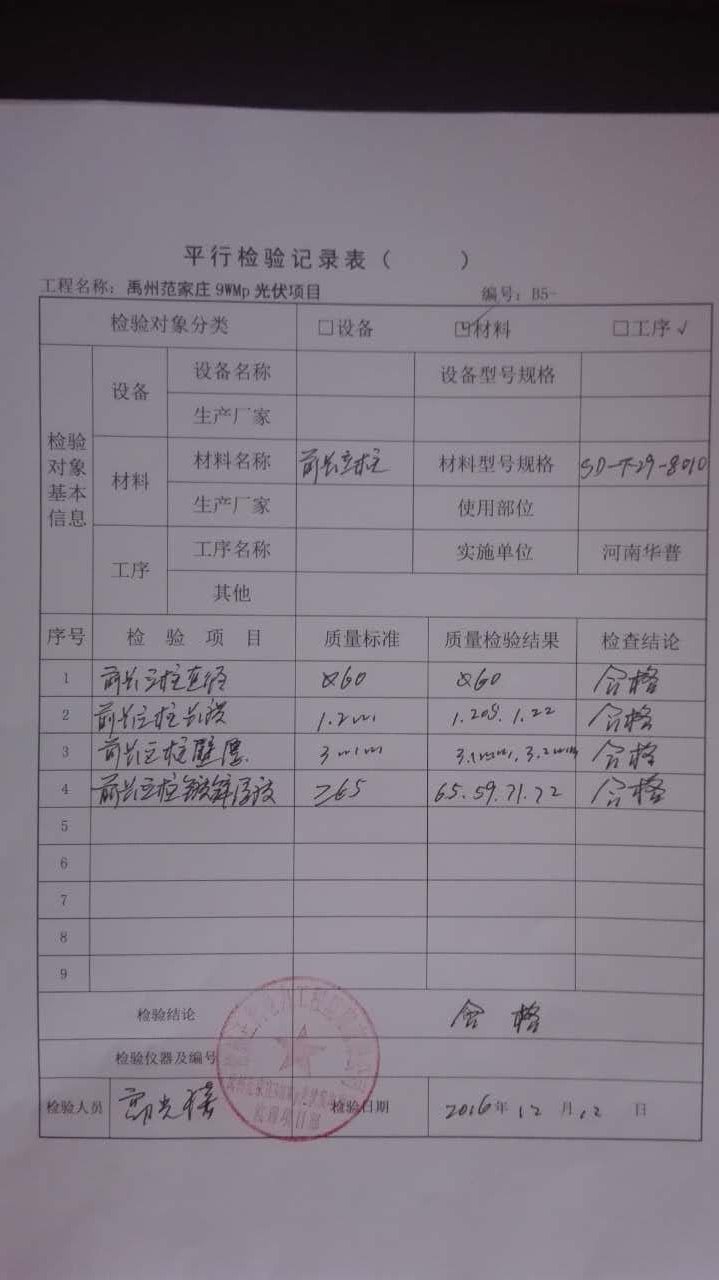 平行检验记录表（ ）
工程名称：禹州范家庄 9WMp 光伏项目 编号：B5-
检验对象分类 □设备 □材料 □工序√
检验对象基本信息
设备 设备名称 设备型号规格
生产厂家
材料 材料名称 前长立柱 材料型号规格 SD-T-29-8010
生产厂家 使用部位
工序 工序名称 实施单位 河南华普
其他
序号 检 验 项 目 质量标准 质量检验结果 检查结论
1 前长立柱直径 ⌀60 ⌀60 合格
2 前长立柱长度 1.2m 1.208. 1.22 合格
3 前长立柱壁厚. 3mm 3.1mm. 3.2mm 合格
4 前长立柱镀锌厚度 ≥65 65.59.71.72 合格
5
6
7
8
9
检验结论 合 格
检验仪器及编号
检验人员 检验日期 2016年12月12日
监理项目部